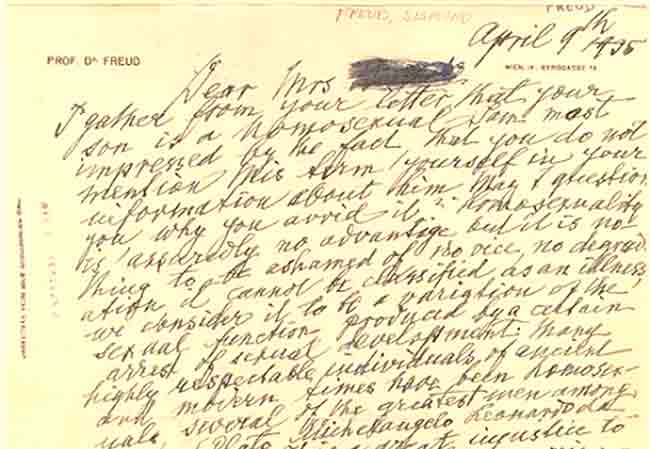 FREUD, SIGMUND
FREUD
April 9th 1935
PROF. Dr FREUD
WIEN, IX., BERGGASSE 19.
Dear Mrs
I gather from your letter that your
son is a homosexual. I am most
impressed by the fact that you do not
mention this term yourself in your
information about him. May I question
you why you avoid it? Homosexuality
is assuredly no advantage but it is no-
thing to be ashamed of, no vice, no degrad-
ation, it cannot be classified as an illness;
we consider it to be a variation of the
sexual function produced by a certain
arrest of sexual development. Many
highly respectable individuals of ancient
and modern times have been homosex-
uals, several of the greatest men among
Plato, Michelangelo, Leonardo da
great injustice to